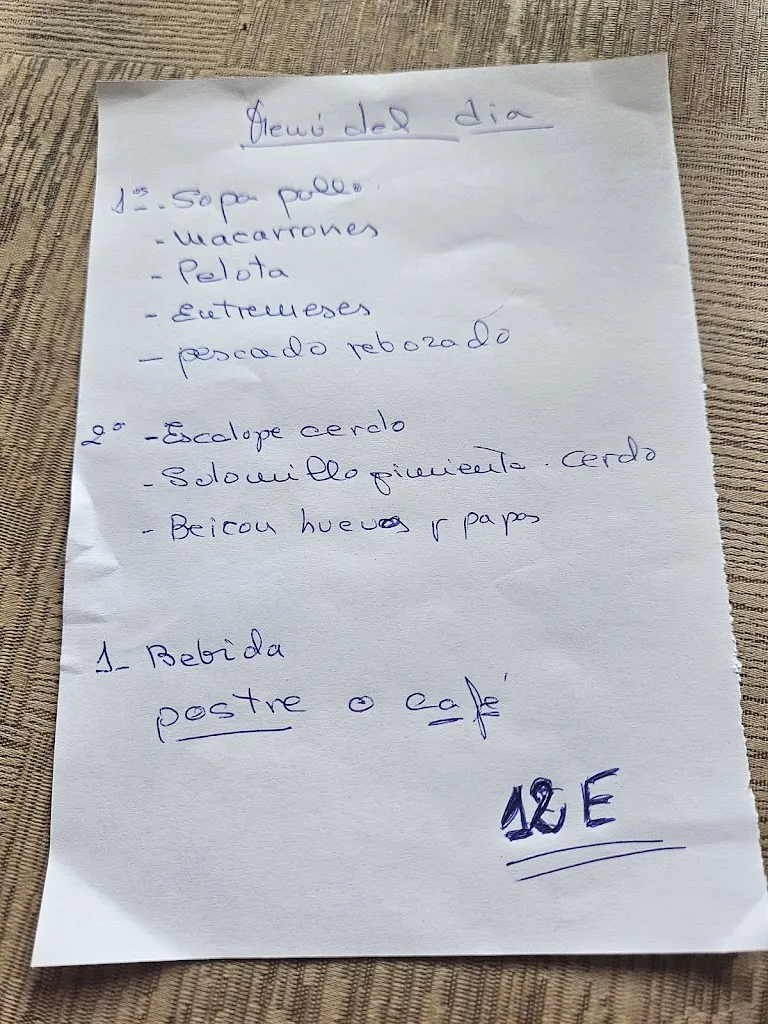 Menú del dia
1ºs. Sopa pollo.
- Macarrones
- Pelota
- Entremeses
- pescado rebozado
2º - Escalope cerdo
- Solomillo pimienta. cerdo
- Beicon huevos y papas
1- Bebida
postre o café
12 E